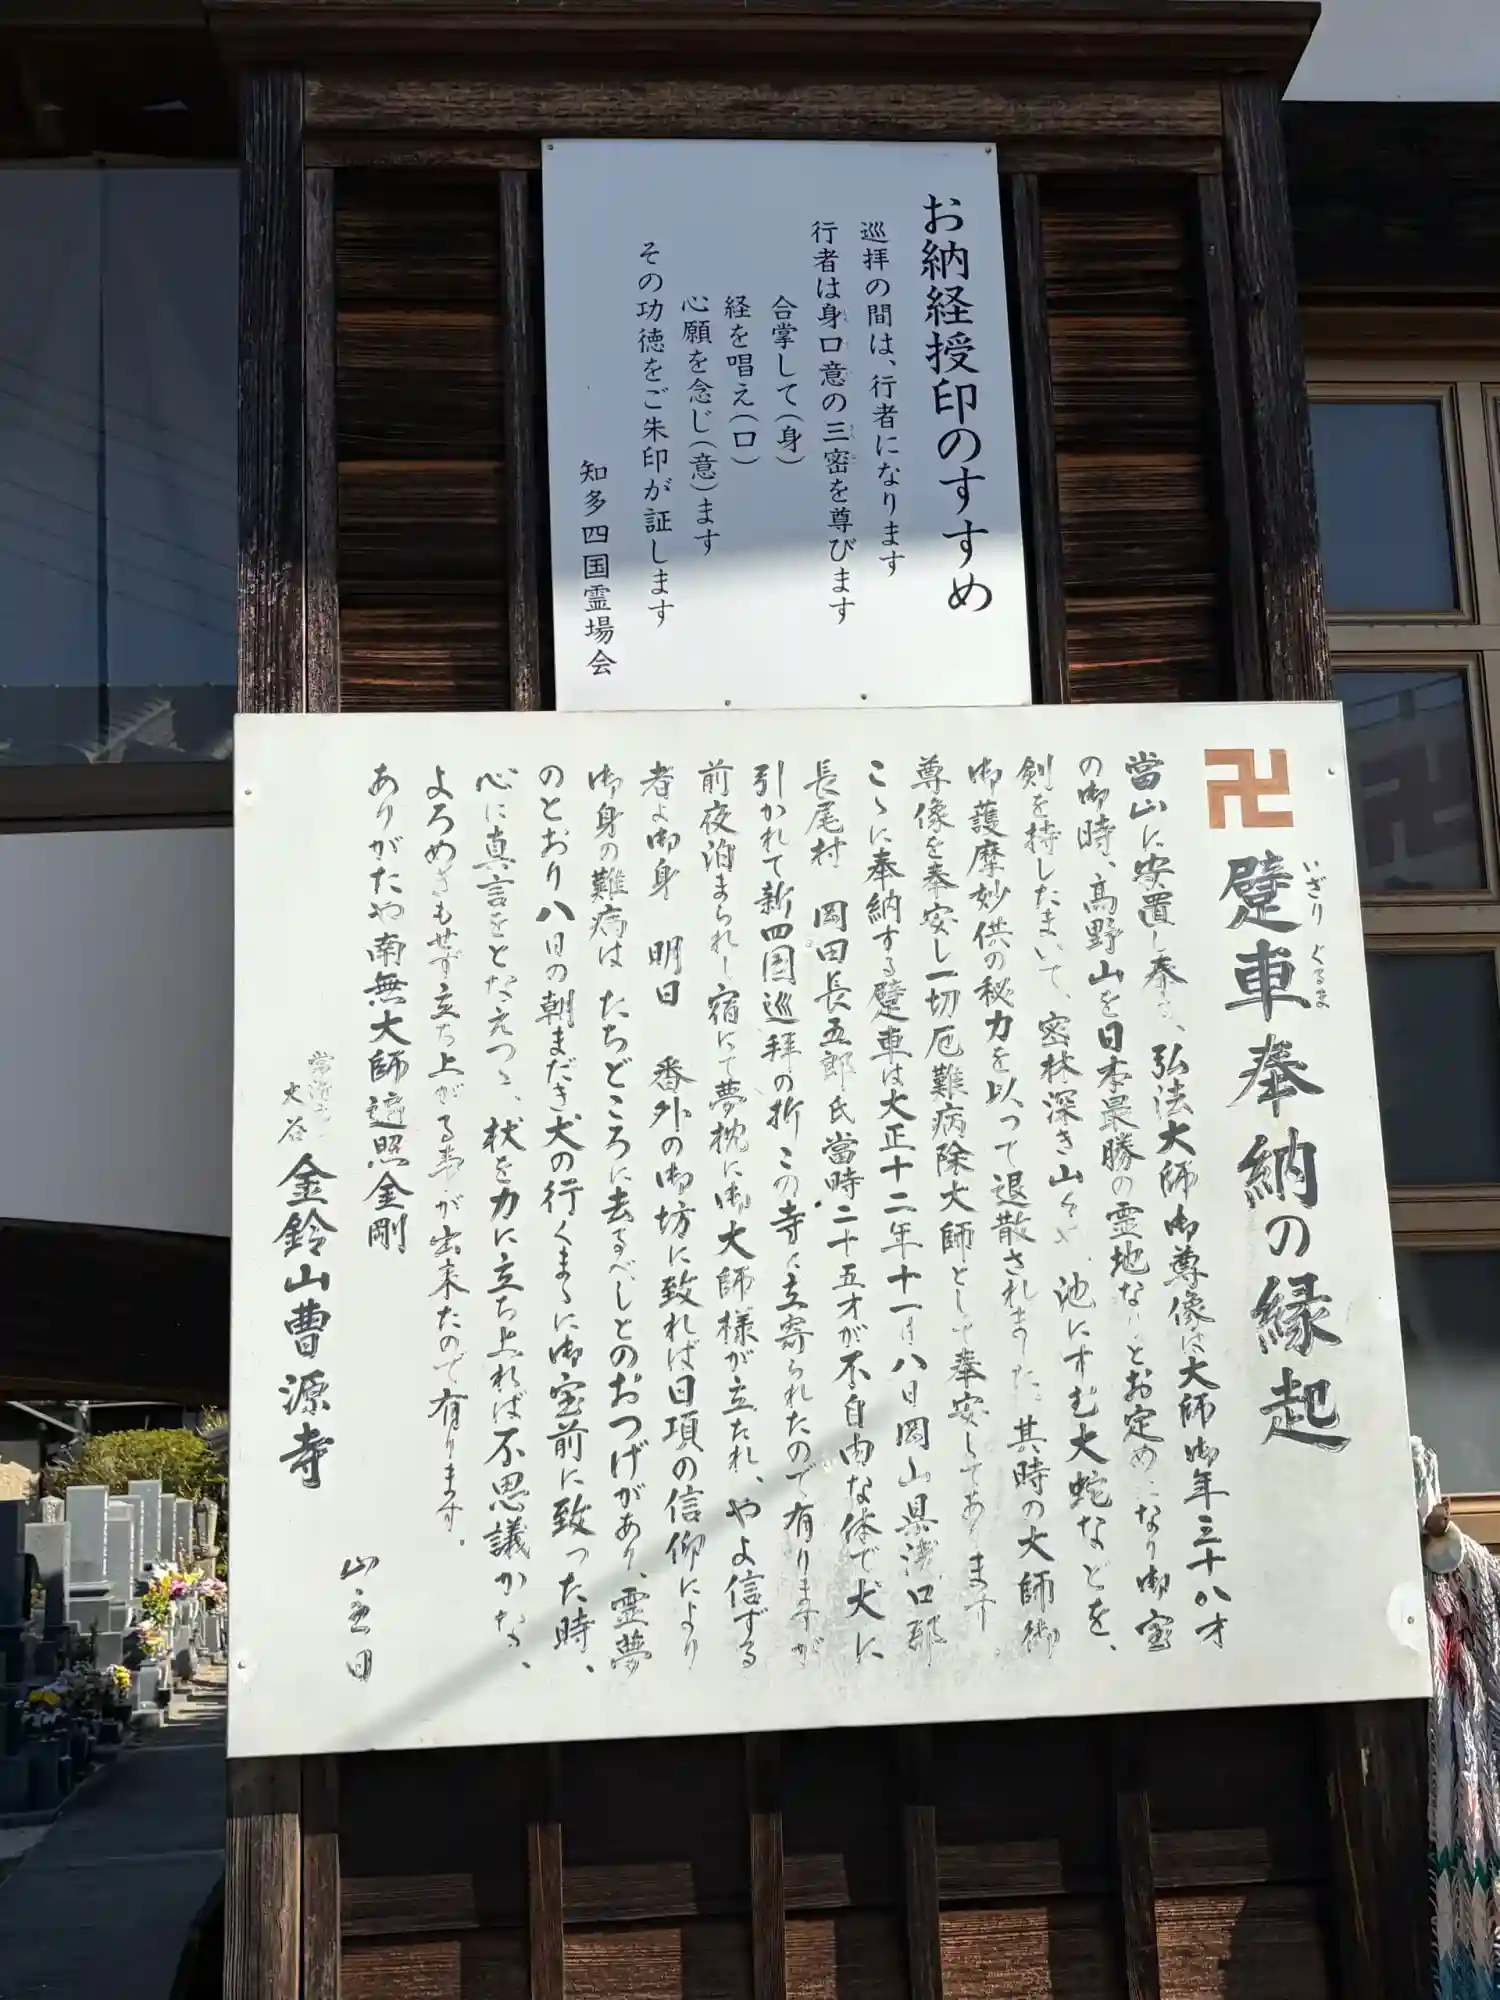 お納経授印のすすめ
巡拝の間は、行者になります
行者は身口意の三密を尊びます
合掌して(身)
経を唱え(口)
心願を念じ(意)ます
その功徳をご朱印が証します
知多四国霊場会
卍 躄車奉納の縁起
いざりぐるま
當山に安置し奉る、弘法大師御尊像は大師御年三十八才
の御時、高野山を日本最勝の霊地なりとお定めになり御宝
剣を持したまいて、密林深き山々や、池にすむ大蛇などを、
御護摩妙供の秘力を以って退散されました其時の大師御
尊像を奉安し一切厄難病除大師として奉安してあります
こゝに奉納する躄車は大正十二年十一月八日岡山県浅口郡
長尾村 岡田長五郎氏當時二十五才が不自由な体で犬に
引かれて新四国巡拝の折この寺に立寄られたので有りますが
前夜泊まられし宿にて夢枕に御大師様が立たれ、やよ信ずる
者よ御身 明日 番外の御坊に致れば日項の信仰により
御身の難病は たちどころに去るべしとのおつげがあり、霊夢
のとおり八日の朝まだき犬の行くまゝに御宝前に致った時、
心に真言をとなえつゝ、杖を力に立ち上れば不思議かな、
よろめきもせず立ち上がる事が出来たので有ります。
ありがたや南無大師遍照金剛
山主曰
大谷 金鈴山曹源寺